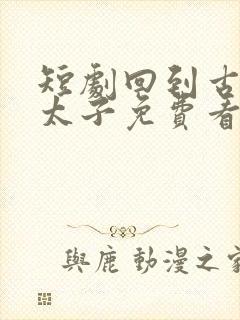 短劇回到古
太子免費看
與鹿 動漫之家